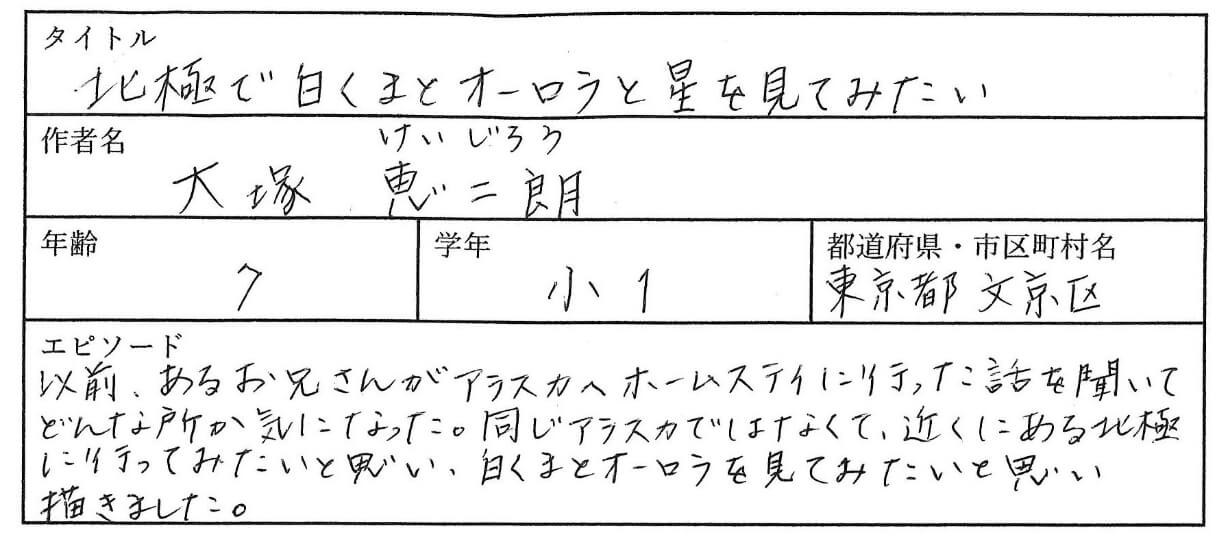 タイトル
北極で白くまとオーロラと星を見てみたい
作者名
けいじろう
大塚 恵二朗
年齢
7
学年
小1
都道府県・市区町村名
東京都文京区
エピソード
以前、あるお兄さんがアラスカへホームステイに行った話を聞いて
どんな所か気になった。同じアラスカではなくて、近くにある北極
に行ってみたいと思い、白くまとオーロラを見てみたいと思い
描きました。